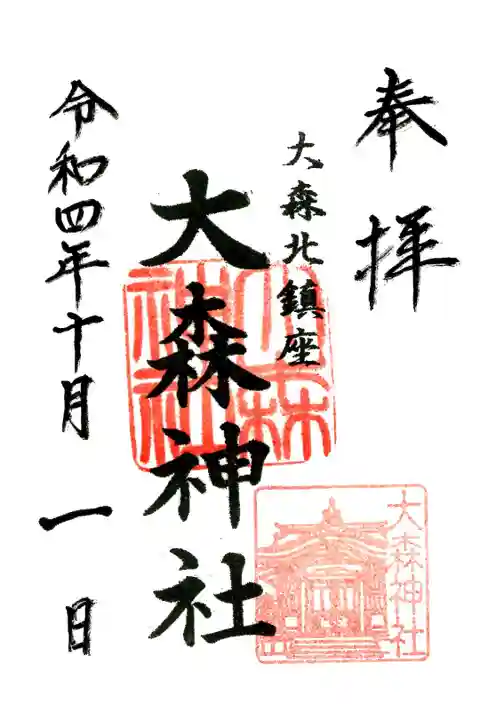 奉拝
大森北鎮座
大森神社
大森神社
大森神社
令和四年十月一日